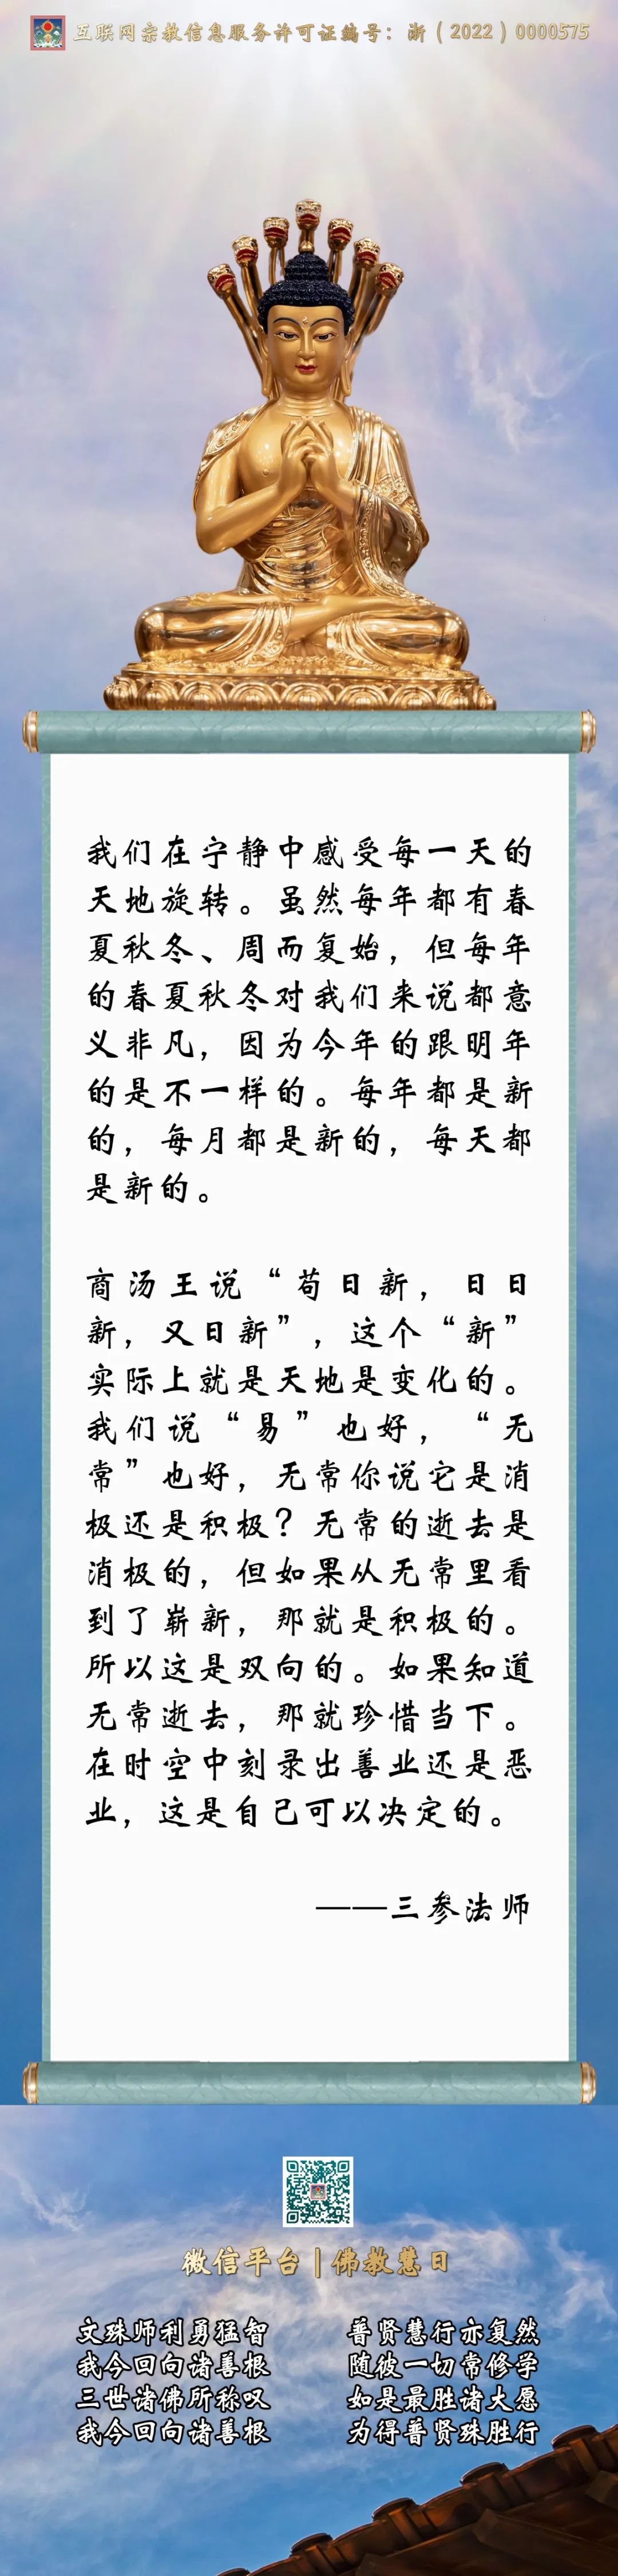 互联网宗教信息服务许可证编号：浙（2022）0000575
我们在宁静中感受每一天的
天地旋转。虽然每年都有春
夏秋冬、周而复始，但每年
的春夏秋冬对我们来说都意
义非凡，因为今年的跟明年
的是不一样的。每年都是新
的，每月都是新的，每天都
是新的。
商汤王说“苟日新，日日
新，又日新”，这个“新”
实际上就是天地是变化的。
我们说“易”也好，“无
常”也好，无常你说它是消
极还是积极？无常的逝去是
消极的，但如果从无常里看
到了崭新，那就是积极的。
所以这是双向的。如果知道
无常逝去，那就珍惜当下。
在时空中刻录出善业还是恶
业，这是自己可以决定的。
——三参法师
微信平台|佛教慧日
文殊师利勇猛智 普贤慧行亦复然
我今回向诸善根 随彼一切常修学
三世诸佛所称叹 如是最胜诸大愿
我今回向诸善根 为得普贤殊胜行